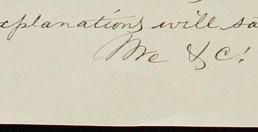 xplanations will sa
We &C!